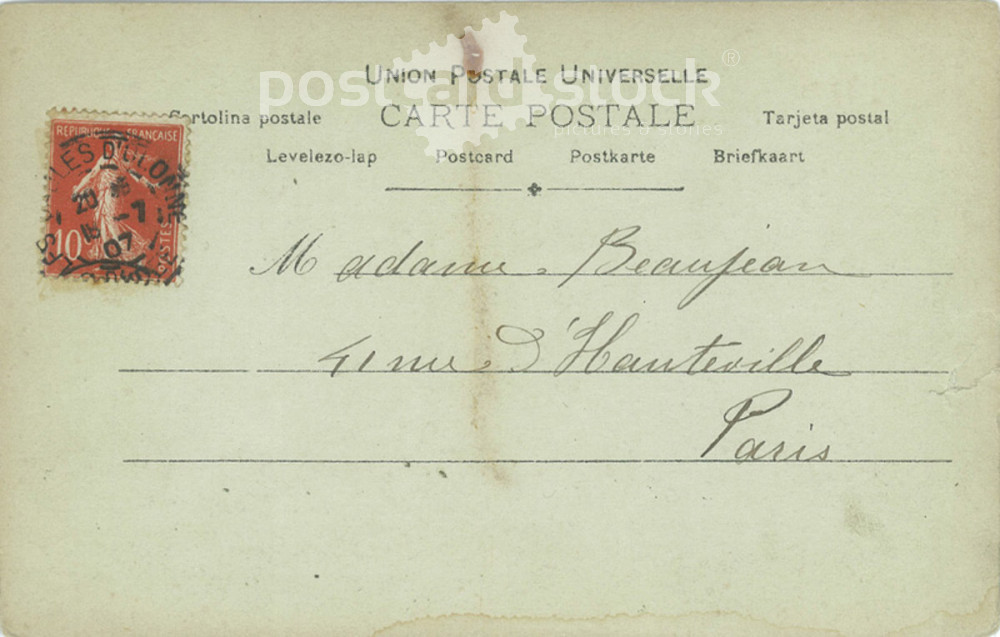 UNION POSTALE UNIVERSELLE
CARTE POSTALE
Cartolina postale
Tarjeta postal
Levelezo-lap Postcard Postkarte Briefkaart
REPUBLIQUE FRANÇAISE
10
POSTES
LES SABLES D'OLONNE
20
-7
07
Madame Beaujean
41 rue d'Hauteville
Paris
postcard stock®
pictures & stories